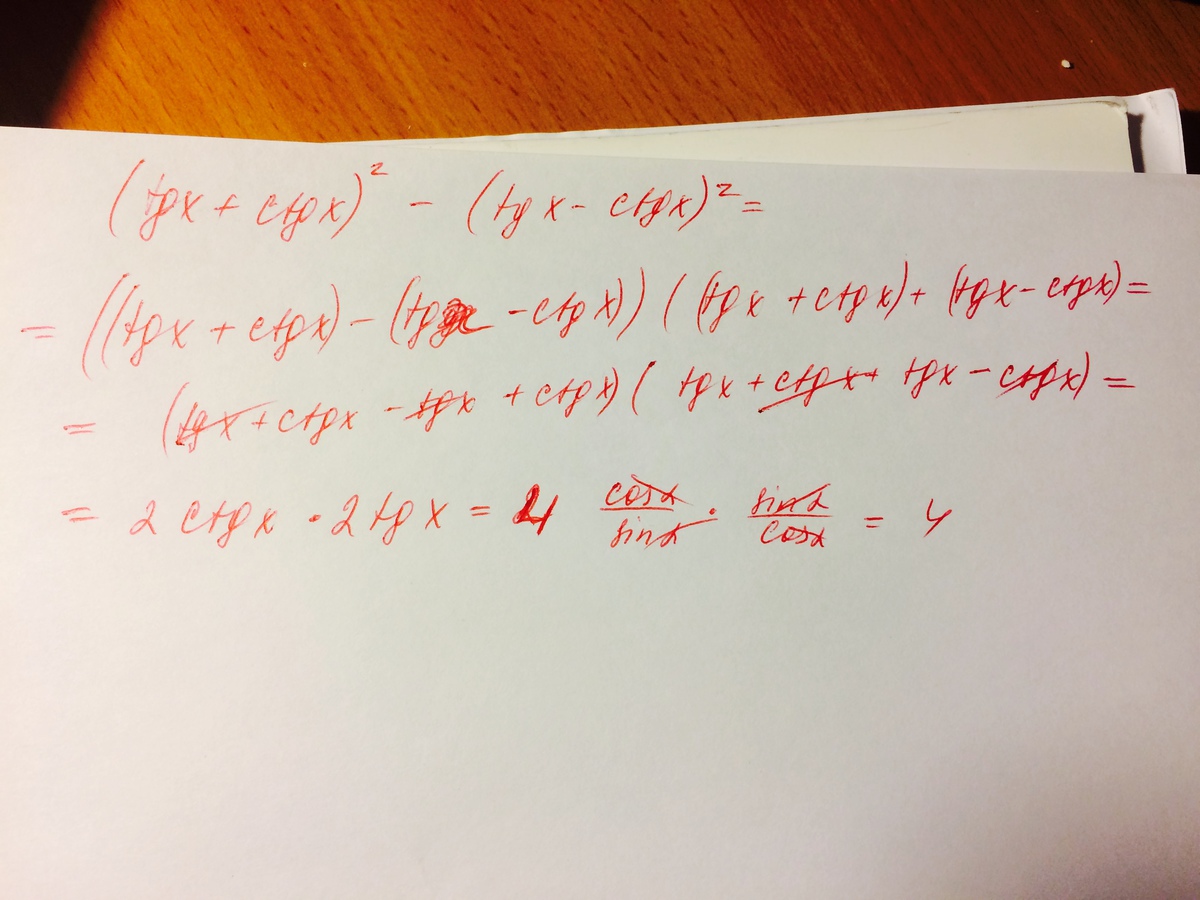 (tgx + ctgx)² - (tgx - ctgx)² =
= ((tgx + ctgx) - (tgx - ctgx)) ( (tgx + ctgx) + (tgx - ctgx) =
= (tgx + ctgx - tgx + ctgx) ( tgx + ctgx + tgx - ctgx) =
= 2 ctgx · 2 tgx = 4 cosα/sinα · sinα/cosα = 4